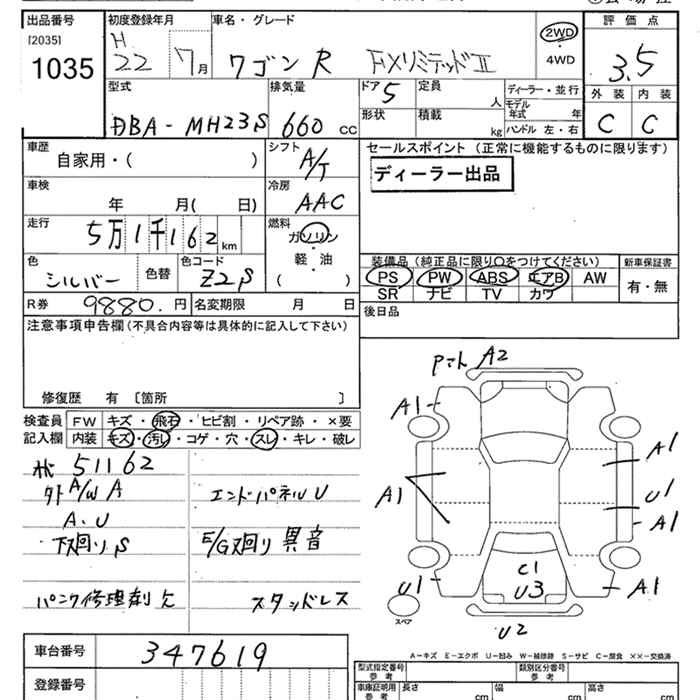 出品番号
[2035]
1035
初度登録年月
H
22 7月
車名・グレード
ワゴンR FXリミテッドⅡ
2WD
・
4WD
評価点
3.5
外装 内装
C C
型式
DBA-MH23S
排気量
660 cc
ドア 5
形状
定員 人
積載 kg
ディーラー・並行
モデル年式 年
ハンドル 左・右
車歴
自家用・( )
シフト
A/T
車検
年 月( 日)
冷房
AAC
走行
5万1千162 km
燃料
ガソリン
・
軽・油
( )
色
シルバー
色替
色コード
Z2S
R券 9880.円
名変期限 月 日
セールスポイント(正常に機能するものに限ります)
ディーラー出品
装備品(純正品に限り○をつけてください)
PS PW ABS エアB AW
SR ナビ TV カワ
新車保証書
有・無
後日品
注意事項申告欄(不具合内容等は具体的に記入して下さい)
修復歴 有 〔箇所 〕
検査員記入欄
FW キズ・飛石・ヒビ割・リペア跡・×要
内装 キズ・汚れ・コゲ・穴・スレ・キレ・破レ
51162
外 A/W A
A.U
下廻りS
パンク修理剤欠
エンドパネルU
E/G廻り異音
スタッドレス
PマトA2
A1
A1
A1
U1
A1
A1
U1
C1
U3
U2
スペア
A-キズ E-エクボ U-凹み W-補修跡 S-サビ C-腐食 ××-交換済
車台番号
347619
登録番号
型式指定番号
参考
類別区分番号
参考
車庫証明用
参考
長さ cm
幅 cm
高さ cm